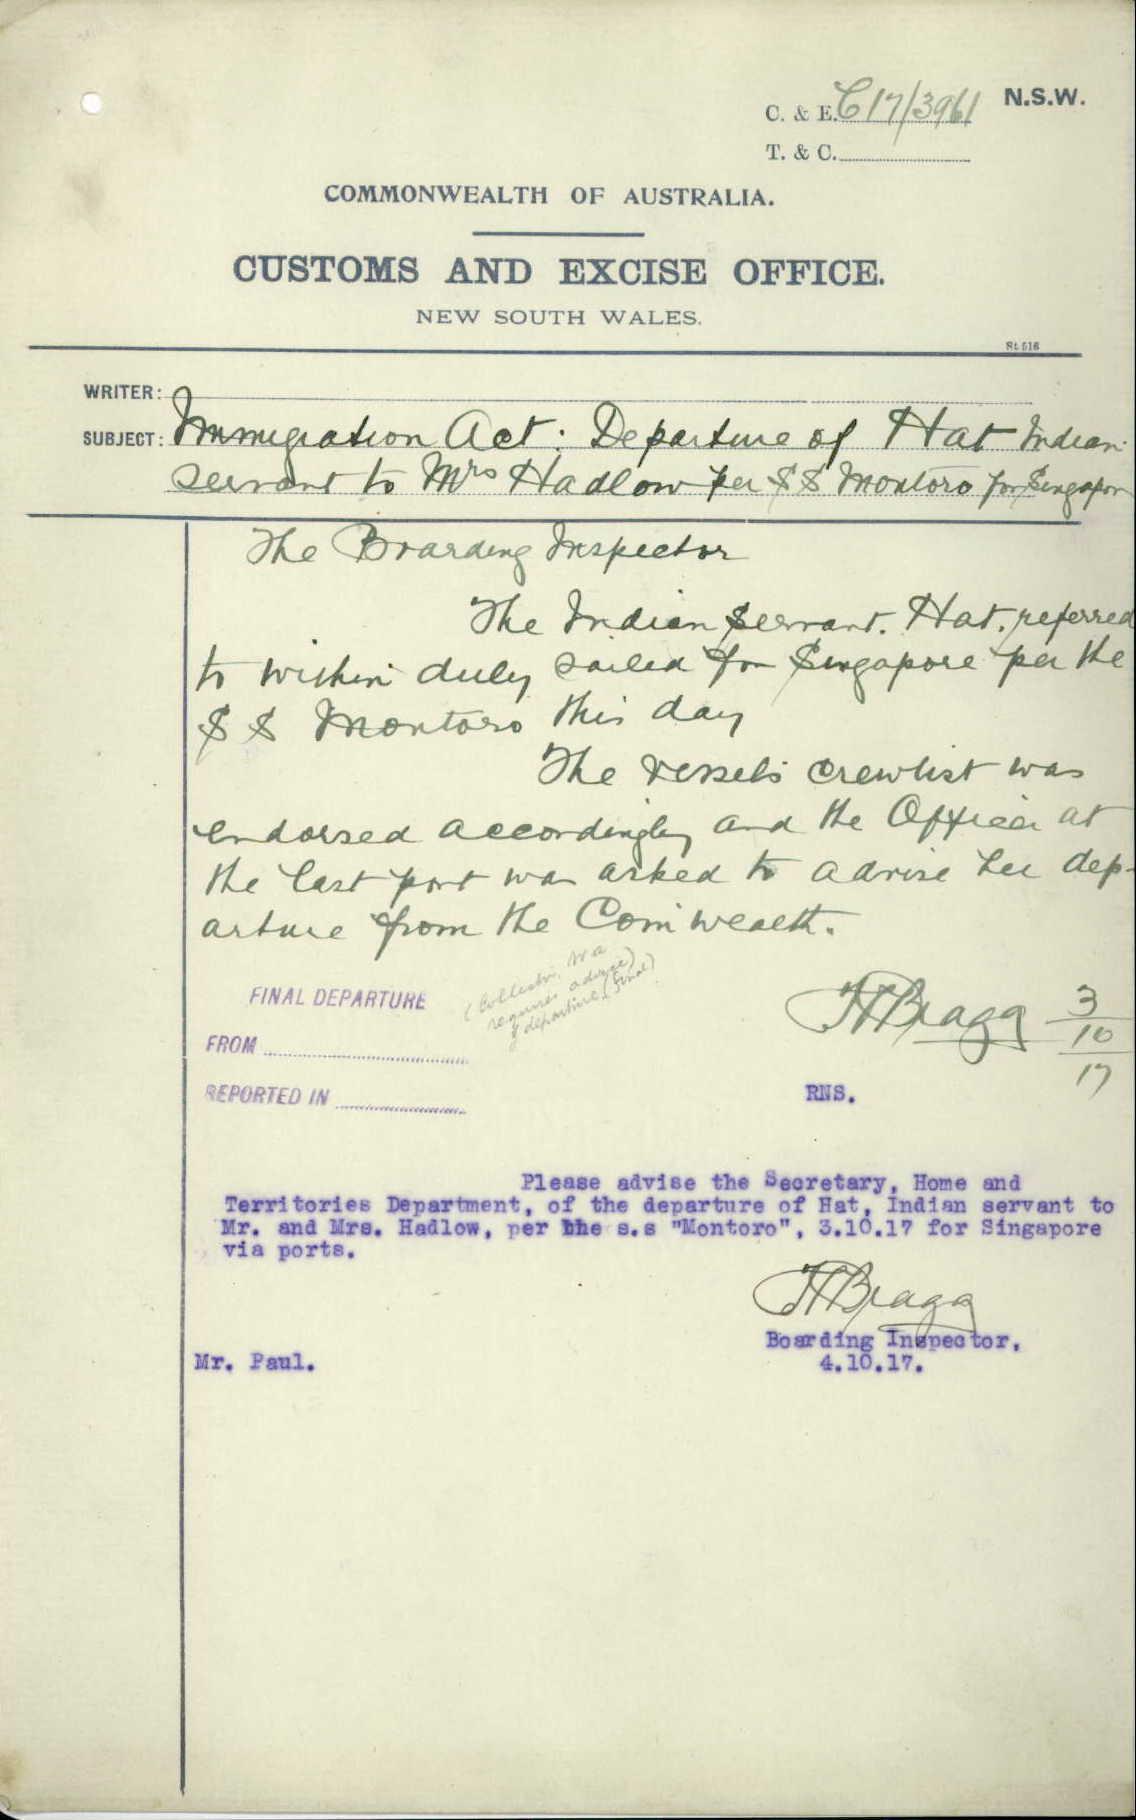 C. & E. C17/3961 N.S.W.
T. & C.
COMMONWEALTH OF AUSTRALIA.
CUSTOMS AND EXCISE OFFICE.
NEW SOUTH WALES.
St. 516
WRITER:
SUBJECT: Immigration Act: Departure of Hat Indian
servant to Mrs Hadlow per S S Montoro for Singapore
The Boarding Inspector
The Indian servant. Hat. referred
to within duly sailed for Singapore per the
S S Montoro this day
The vessels crewlist was
endorsed accordingly and the Officer at
the last port was asked to advise her dep-
arture from the Comwealth.
(Collector, WA
requires advice)
of departure (final)
FINAL DEPARTURE
FROM
REPORTED IN
HBragg 3/10/17
RNS.
Please advise the Secretary, Home and
Territories Department, of the departure of Hat, Indian servant to
Mr. and Mrs. Hadlow, per the s.s "Montoro", 3.10.17 for Singapore
via ports.
HBragg
Boarding Inspector.
Mr. Paul. 4.10.17.